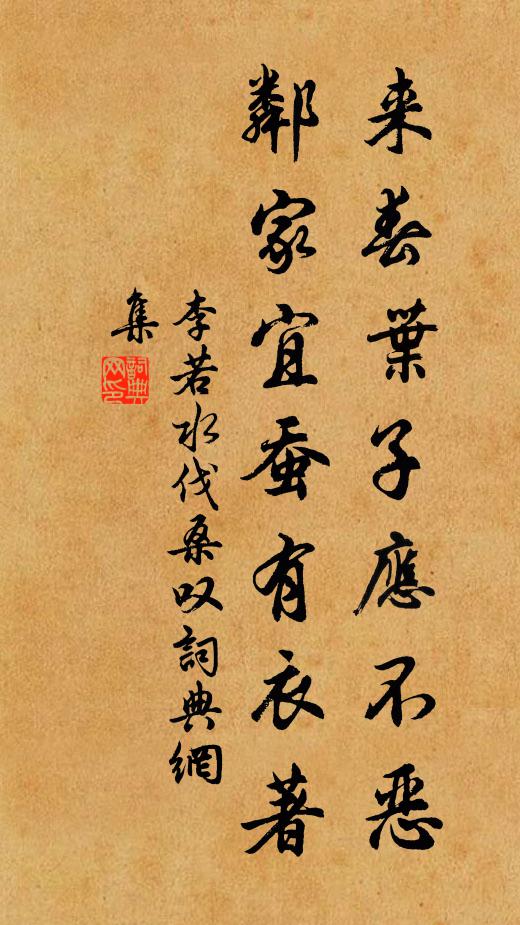 来春葉子應不恶
鄰家宜蚕有衣著
李若水伐桑叹詞典網
集
詞典
网印